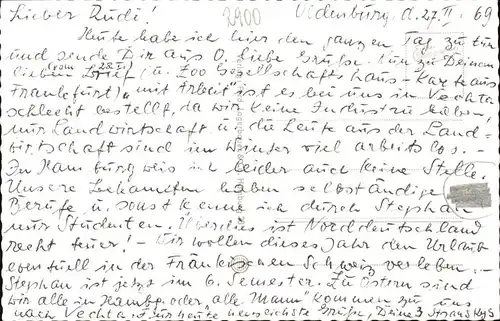 Lieber Rudi! 2900 Oldenburg, d. 27. II. 69
Heute habe ich hier den ganzen Tag zu tun
und sende Dir aus O. liebe Grüße. Nun zu Deinem
lieben Brief (vom 22. II) (u. Zoo Gesellschaftshaus-Karte aus
Frankfurt) „mit Arbeit" ist es bei uns in Vechta
schlecht bestellt, da wir keine Industrie haben,
nur Landwirtschaft u. die Leute aus der Land-
wirtschaft sind im Winter viel arbeitslos. -
In Hamburg weis ich leider auch keine Stelle.
Unsere Bekannten haben selbständige
Berufe u. sonst kenne ich durch Stephan
nur Studenten. Überdies ist Norddeutschland
recht teuer! - Wir wollen dieses Jahr den Urlaub
eventuell in der Fränkischen Schweiz verleben. -
Stephan ist jetzt im 6. Semester. Zu Ostern sind
wir alle in Hambg. oder „alle Mann" kommen zu uns
nach Vechta. Für heute herzlichste Grüße, Deine 3